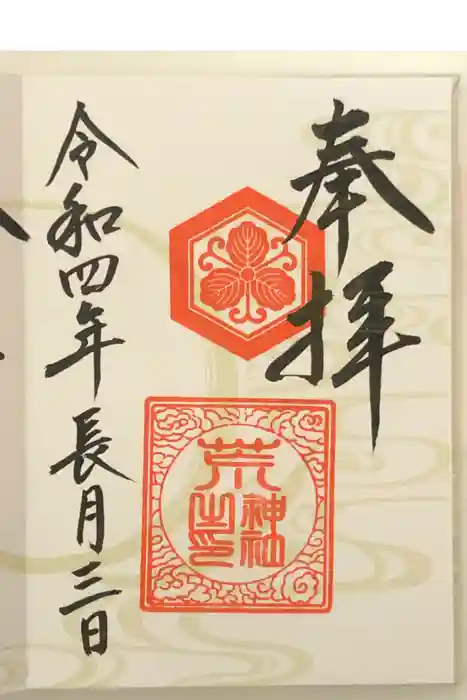 奉拝
荒
神社
之印
令和四年長月三日